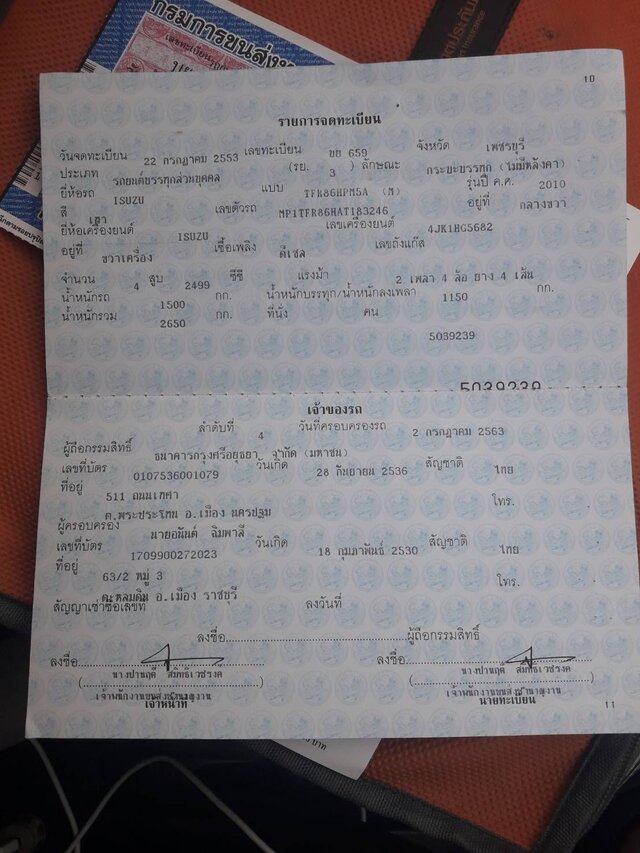 กรมการขนส่งทางบก
10
รายการจดทะเบียน
วันจดทะเบียน 22 กรกฎาคม 2553 เลขทะเบียน บย 659 จังหวัด เพชรบุรี
ประเภท รถยนต์บรรทุกส่วนบุคคล (รย. 3 ) ลักษณะ กระบะบรรทุก (ไม่มีหลังคา)
ยี่ห้อรถ ISUZU แบบ TFR86HPM5A (M) รุ่นปี ค.ศ. 2010
สี เทา เลขตัวรถ MP1TFR86HAT183246 อยู่ที่ กลางขวา
ยี่ห้อเครื่องยนต์ ISUZU เลขเครื่องยนต์ 4JK1HG5682
อยู่ที่ ขวาเครื่อง เชื้อเพลิง ดีเซล เลขถังแก๊ส
จำนวน 4 สูบ 2499 ซีซี แรงม้า 2 เพลา 4 ล้อ ยาง 4 เส้น
น้ำหนักรถ 1500 กก. น้ำหนักบรรทุก/น้ำหนักลงเพลา 1150 กก.
น้ำหนักรวม 2650 กก. ที่นั่ง คน
5039239
5039239
เจ้าของรถ
ลำดับที่ 4 วันที่ครอบครองรถ 2 กรกฎาคม 2563
ผู้ถือกรรมสิทธิ์ ธนาคารกรุงศรีอยุธยา จำกัด (มหาชน)
เลขที่บัตร 0107536001079 วันเกิด 28 กันยายน 2536 สัญชาติ ไทย
ที่อยู่ 511 ถนนเทศา โทร.
ต.พระประโทน อ.เมือง นครปฐม
ผู้ครอบครอง นายอนันต์ ฉิมพาลี
เลขที่บัตร 1709900272023 วันเกิด 18 กุมภาพันธ์ 2530 สัญชาติ ไทย
ที่อยู่ 63/2 หมู่ 3 โทร.
ต.หลุมดิน อ.เมือง ราชบุรี
สัญญาเช่าซื้อเลขที่ ลงวันที่
ลงชื่อ ผู้ถือกรรมสิทธิ์
ลงชื่อ ลงชื่อ
เจ้าพนักงานขนส่งชำนาญงาน เจ้าพนักงานขนส่งชำนาญงาน
เจ้าหน้าที่ นายทะเบียน
11
บาท